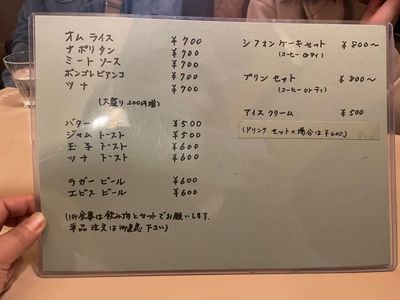 オム ライス ￥700
ナポリタン ￥700
ミート ソース ￥700
ボンゴレビアンコ ￥700
ツナ ￥700
(大盛り 200円増)
バター ￥500
ジャム トースト ￥500
玉子 トースト ￥600
ツナ トースト ￥600
ラガー ビール ￥600
エビス ビール ￥600
(お食事は飲み物とセットでお願いします.
単品 注文は御遠慮 下さい)
シフォン ケーキ セット ￥800～
(コーヒー orティ)
プリン セット ￥800～
(コーヒー orティ)
アイス クリーム ￥500
(ドリンク セットの場合は￥400.)